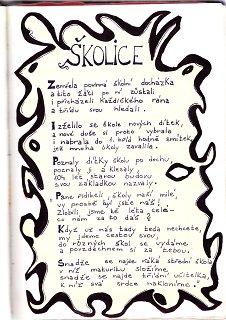 ŠKOLICE
Zemřela povinná školní docházka
a žáci po ní zůstali
i přicházeli každičkého rána
a třídu svou hledali.
I želelo se škole nových dítek,
a nové duše si proto vybrala
i nabrala do 1. tříd hodně smítek,
jež mnohá školy zavalila.
Poznaly dítky školu po dechu,
poznaly ji a klesaly,
104 let starou budovu
svou základkou nazvaly.
Pane řediteli, školy naší milé,
vy prostě byl jste náš!
Zlobili jsme ké léta celé-
co nám za to dáš?
Když už nás tady teda nechcete,
my jdeme cestou svou,
do různých škol se vydáme
a porozhlédnem si za tebou.
Snadže se najde nějaká střední škola
v níž maturitu složíme,
snadže se najde třídní učitelka,
k níž svá srdce nakloníme."